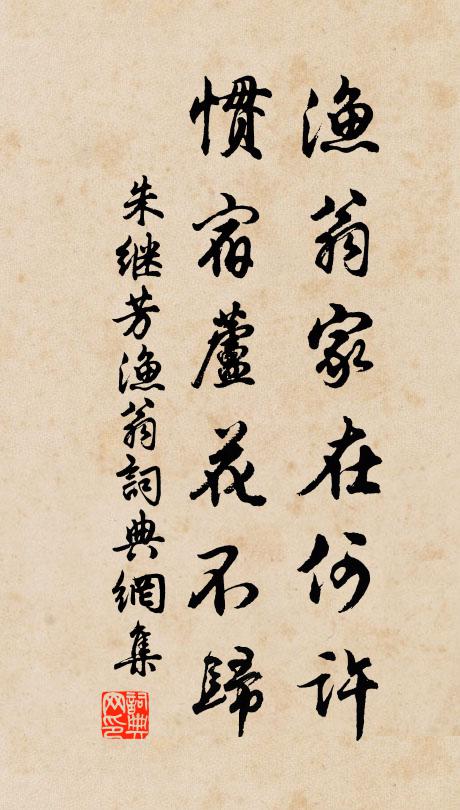 漁翁家在何許
慣宿蘆花不歸
朱继芳漁翁詞典網集
詞典网印